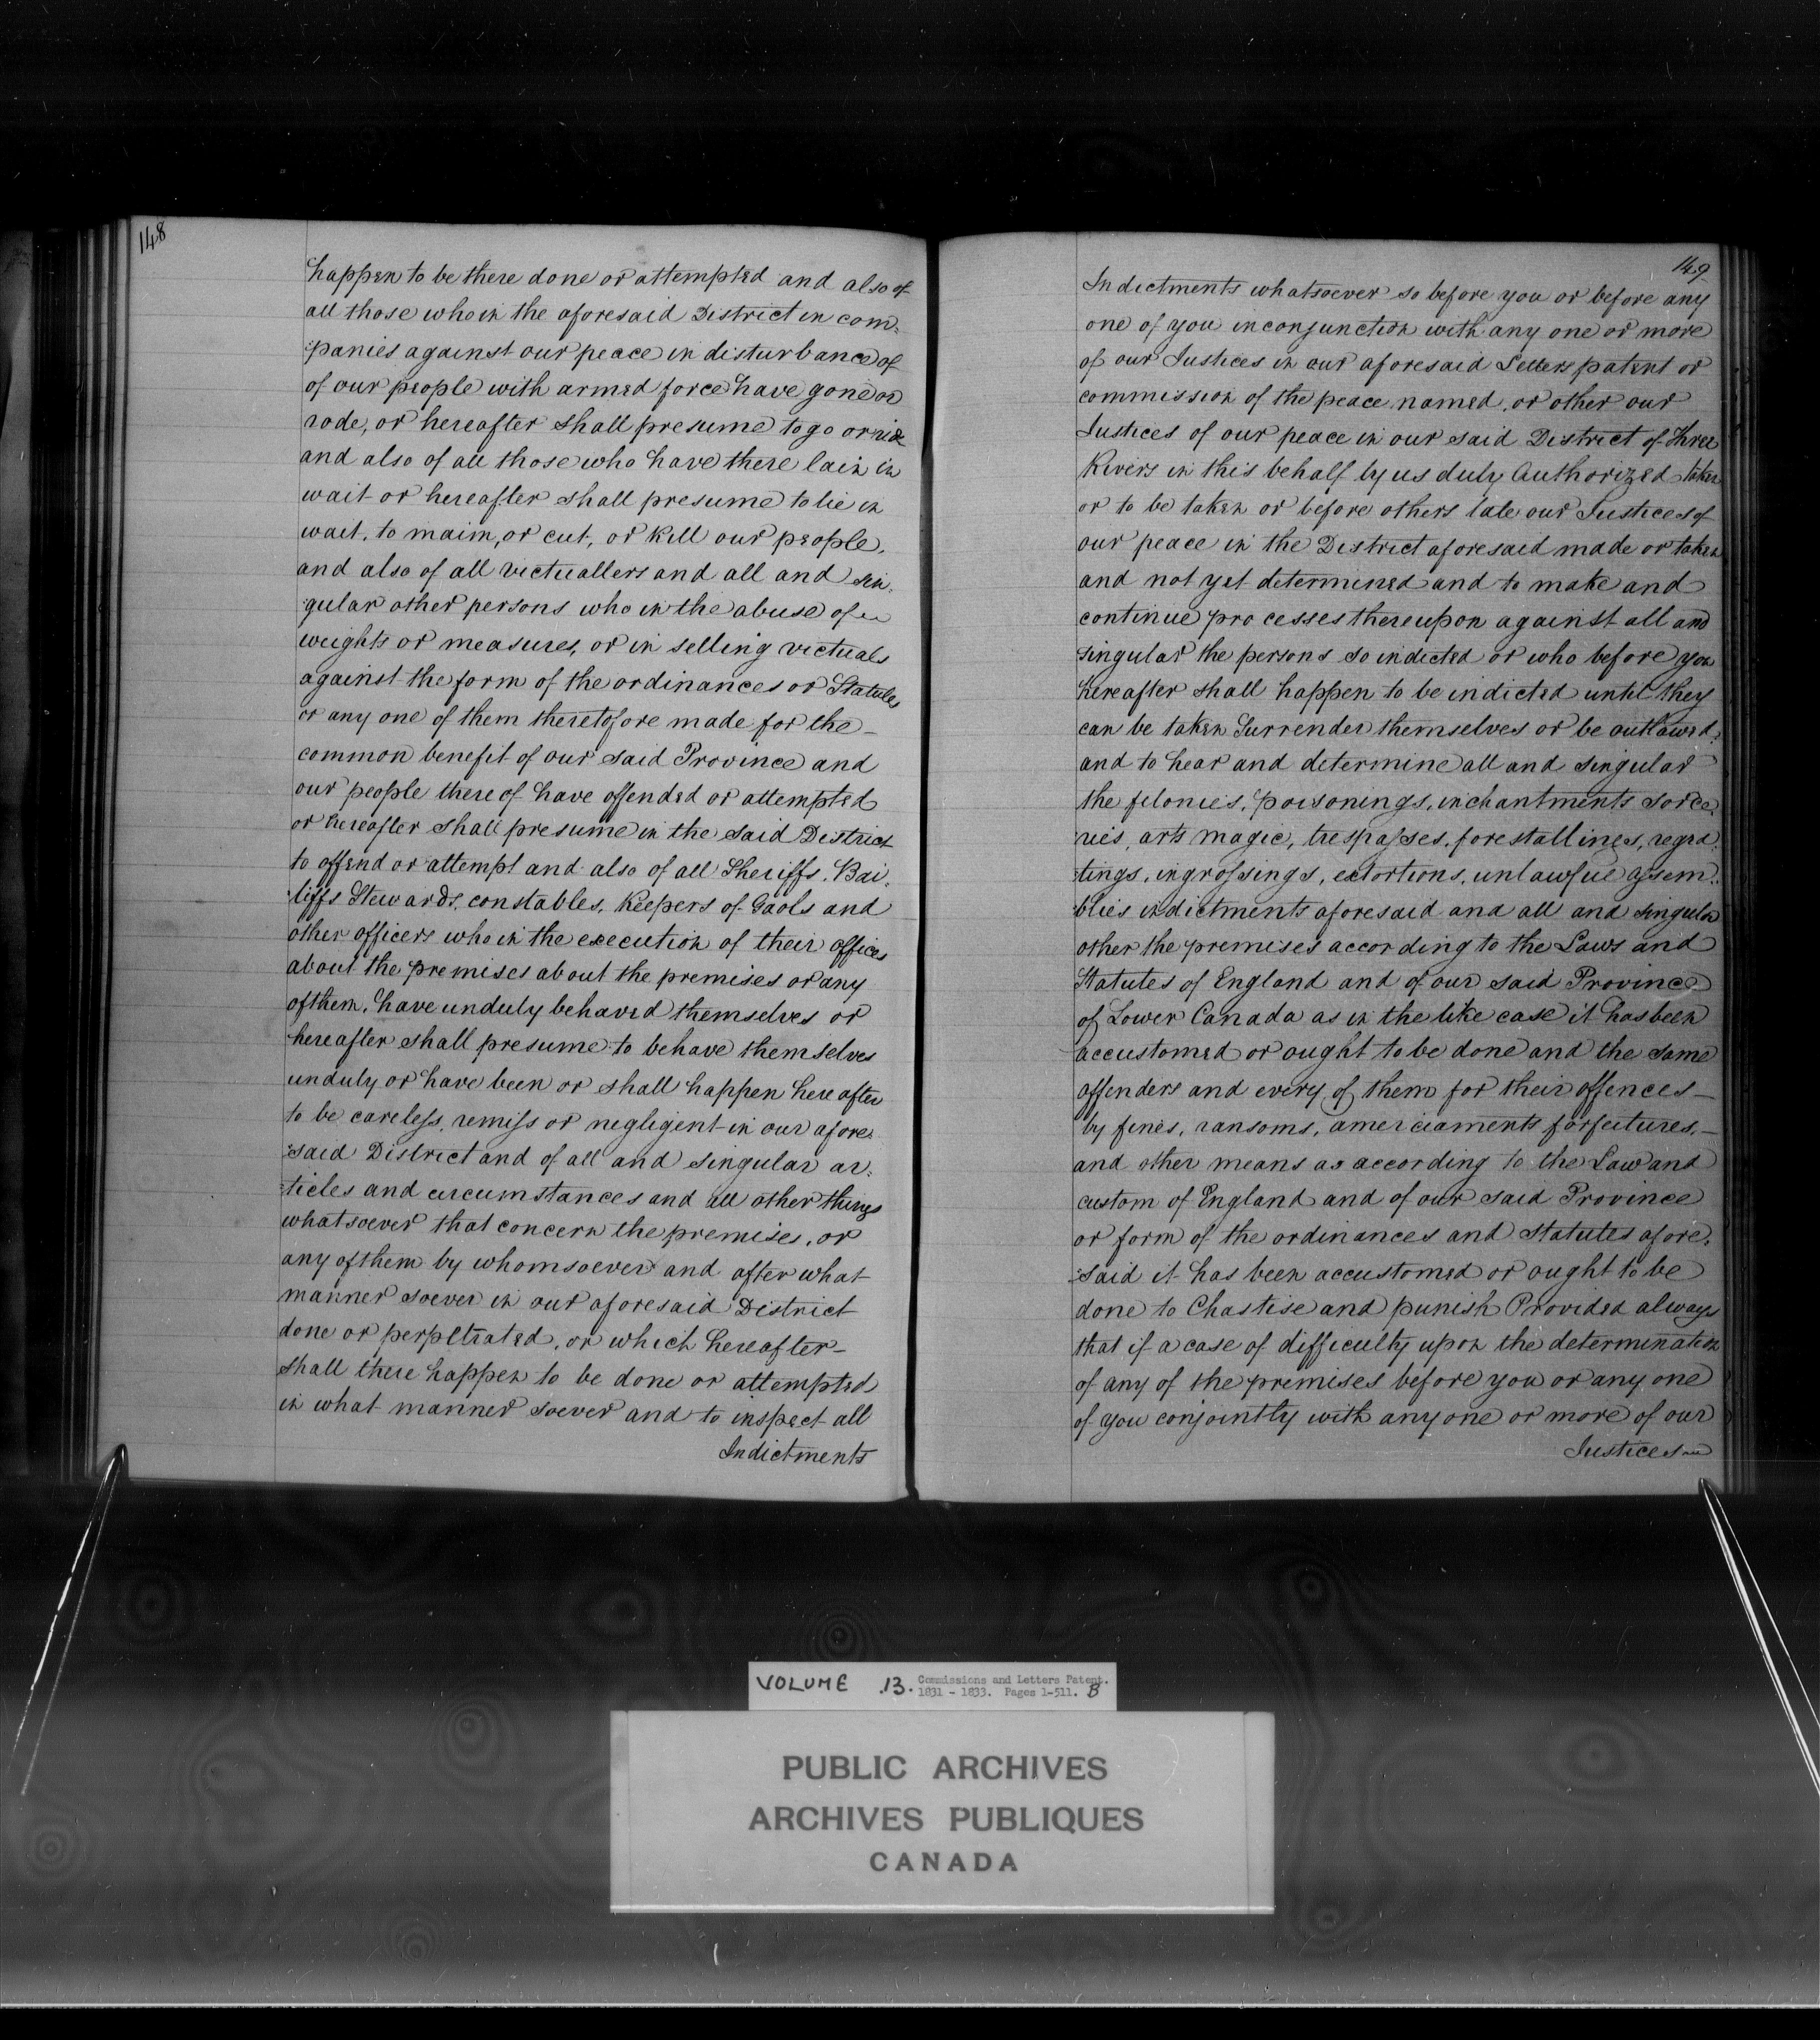 148
happen to be there done or attempted and also of
all those who in the aforesaid District in com-
:panies against our peace in disturbance of
of our people with armed force have gone or
rode, or hereafter shall presume to go or ride
and also of all those who have there lain in
wait or hereafter shall presume to lie in
wait, to maim, or cut, or kill our people,
and also of all victuallers and all and sin-
:gular other persons who in the abuse of
weights or measures, or in selling victuals
against the form of the ordinances or Statutes
or any one of them theretofore made for the -
common benefit of our said Province and
our people thereof have offended or attempted
or hereafter shall presume in the said District
to offend or attempt and also of all Sheriffs, Bai-
:liffs Stewards, constables, Keepers of Gaols and
other officers who in the execution of their offices
about the premises about the premises or any
of them, have unduly behaved themselves or
hereafter shall presume to behave themselves
unduly or have been or shall happen hereafter
to be careless, remiss or negligent in our afore-
:said District and of all and singular ar-
:ticles and circumstances and all other things
whatsoever that concern the premises, or
any of them by whomsoever and after what
manner soever in our aforesaid District
done or perpetrated, or which hereafter -
shall there happen to be done or attempted
in what manner soever and to inspect all
Indictments
149
Indictments whatsoever so before you or before any
one of you in conjunction with any one or more
of our Justices in our aforesaid Letters patent or
commission of the peace named, or other our
Justices of our peace in our said District of Three
Rivers in this behalf by us duly Authorized taken
or to be taken or before others late our Justices of
our peace in the District aforesaid made or taken
and not yet determined and to make and
continue processes thereupon against all and
singular the persons so indicted or who before you
hereafter shall happen to be indicted until they
can be taken Surrender themselves or be outlawed,
and to hear and determine all and singular
the felonies, poisonings, inchantments sorce-
:ries, arts magic, trespasses, forestallings, regra-
:tings, ingrossings, extortions, unlawful assem-
:blies indictments aforesaid and all and singular
other the premises according to the Laws and
Statutes of England and of our said Province
of Lower Canada as in the like case it has been
accustomed or ought to be done and the same
offenders and every of them for their offences -
by fines, ransoms, amerciaments forfeitures, -
and other means as according to the Law and
custom of England and of our said Province
or form of the ordinances and statutes afore-
:said it has been accustomed or ought to be
done to Chastise and punish Provided always
that if a case of difficulty upon the determination
of any of the premises before you or any one
of you conjointly with any one or more of our
Justices
VOLUME 13. Commissions and Letters Patent.
1831 - 1833. Pages 1-511. B
PUBLIC ARCHIVES
ARCHIVES PUBLIQUES
CANADA